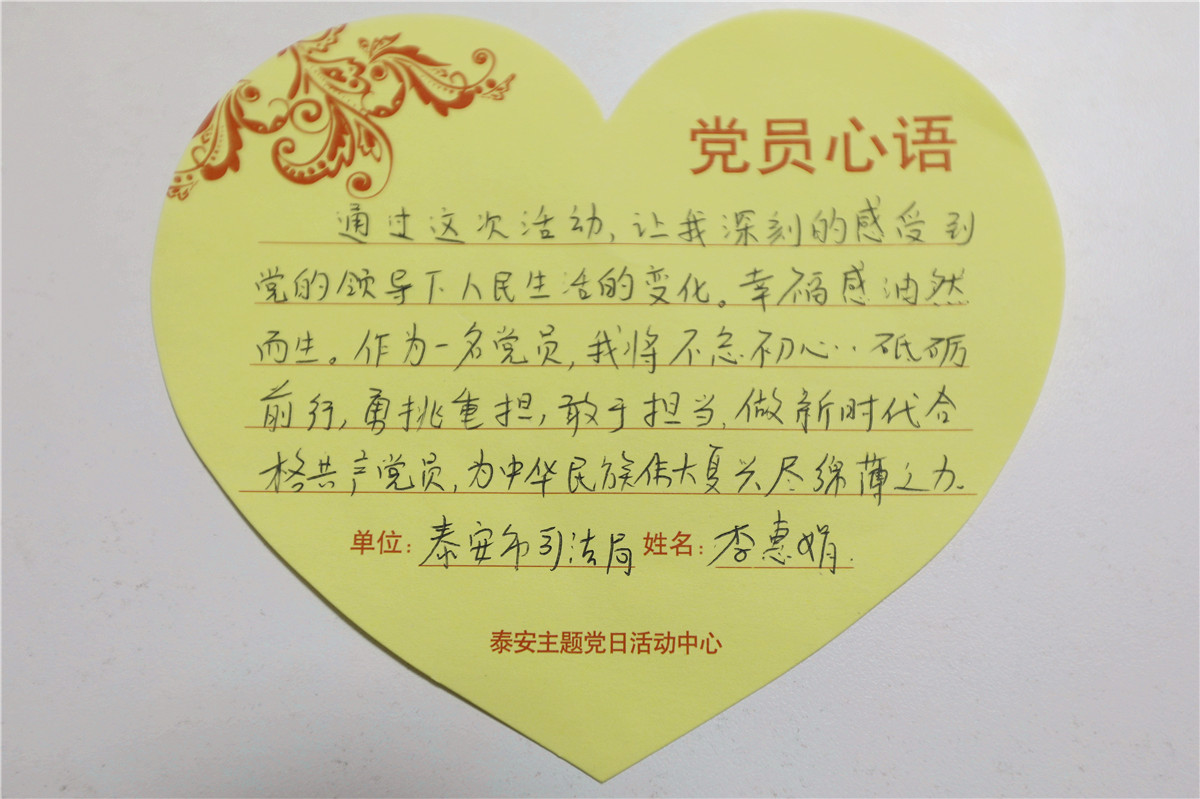 党员心语
通过这次活动,让我深刻的感受到
党的领导下人民生活的变化。幸福感油然
而生。作为一名党员,我将不忘初心..砥砺
前行,勇挑重担,敢于担当,做新时代合
格共产党员,为中华民族伟大复兴尽绵薄之力。
单位:泰安市司法局 姓名:李惠娟.
泰安主题党日活动中心